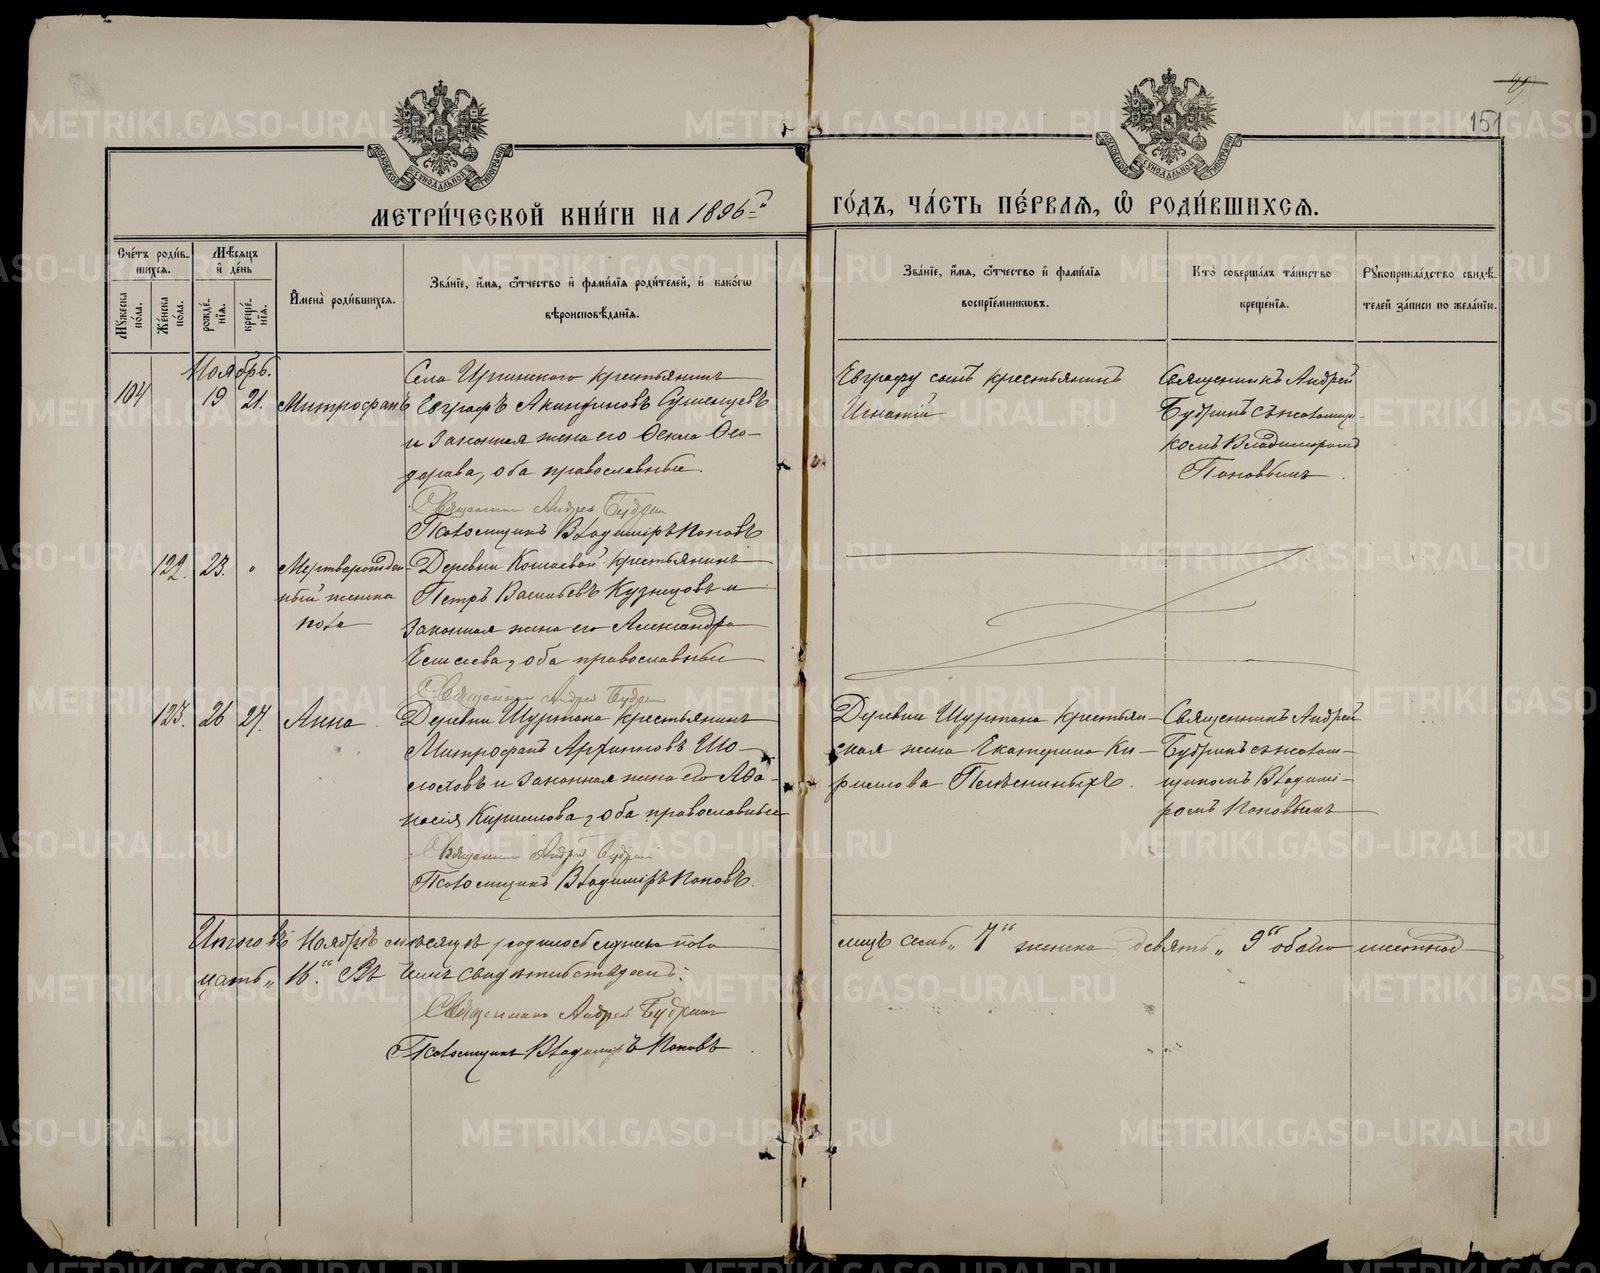 151
МЕТРИ́ЧЕСКОЙ КНИ́ГИ НА 1896-й
ГО́ДЪ, ЧА́СТЬ ПЕ́РВАѦ, Ѽ РОДИ́ВШИХСѦ.
Сче́тъ роди́в-
шихся.
Мѣ́сяцъ
и҆ де́нь
Му́жеска по́ла.
Же́нска по́ла.
рожде́-
нїѧ.
креще́-
нїѧ.
И҆мена̀ роди́вшихся.
Зва́нїе, и҆́мя, ѻ҆́тчество и҆ фами́лїѧ роди́телей, и҆ како́гѡ
вѣроисповѣ́данїѧ.
Зва́нїе, и҆́мя, ѻ҆́тчество и҆ фами́лїѧ
воспрїе́мникѡвъ.
Кто̀ соверша́лъ та́инство
креще́нїѧ.
Рꙋкоприкла́дство свидѣ́-
телей за́писи по жела́нїю.
Ноябрь.
104
19
21.
Митрофанъ
Села Иргинскаго крестьянинъ
Евграфъ Акинфиновъ Сушенцевъ
и законная жена его Ѳекла Ѳео-
дорова, оба православные.
Священникъ Андрей Будринъ
Псаломщикъ Владиміръ Поповъ
Евграфу сынъ крестьянинъ
Игнатій
Священникъ Андрей
Будринъ съ псаломщи-
комъ Владиміромъ
Поповымъ.
122.
23.
"
Мертворожден-
ный женска
пола
Деревни крестьянинъ
Петръ Васильевъ Кузнецовъ и
законная жена его Александра
оба православные
Священникъ Андрей Будринъ
123.
26
27.
Анна
Деревни Шуртана крестьянинъ
Митрофанъ Архиповъ Шо-
лоховъ и законная жена его Аѳа-
насія Кирилова, оба православные
Священникъ Андрей Будринъ
Псаломщикъ Владиміръ Поповъ.
Деревни Шуртана крестьян-
ская жена Екатерина Ки-
рилова
Священникъ Андрей
Будринъ съ псалом-
щикомъ Владимі-
ромъ Поповымъ
Итого въ Ноябрѣ мѣсяцѣ родилось мужска пола
лицъ семь„ 7" женска девять„ 9" обоего шестнад-
цать„ 16". Въ чемъ свидѣтельствуемъ:
Священникъ Андрей Будринъ
Псаломщикъ Владиміръ Поповъ